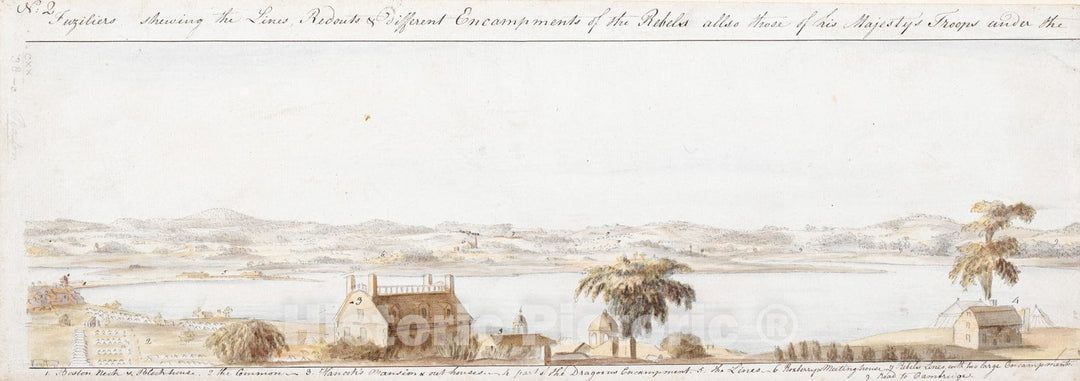 No. 2
Fuziliers shewing the Lines, Redouts & different Encampments of the Rebels allso those of his Majesty's Troops under the
1 Boston Neck & Block house. 2 the Common — 3 Hancock's Mansion & out houses — 4 part of the Dragoons Encampment 5. the Lines. 6 Roxberry Meeting house 7 Rebels Lines with two large Encampments
9 Road to Cambridge.
Historic Pictoric ®